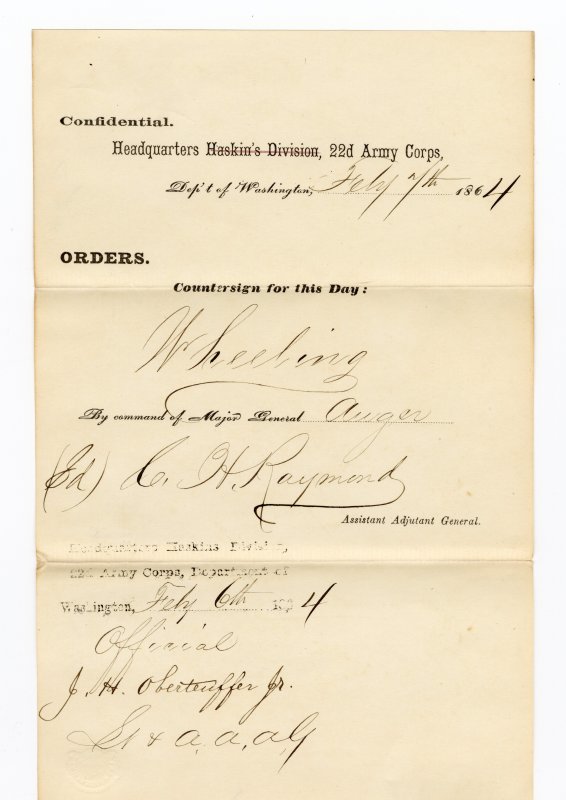 Confidential.
Headquarters Haskin's Division, 22d Army Corps,
Dep't of Washington, Feby 7th 1864
ORDERS.
Countersign for this Day:
Wheeling
By command of Major General Auger
(Sd) C. H. Raymond
Assistant Adjutant General.
Headquarters Haskins Division,
22d Army Corps, Department of
Washington, Feby 6th 1864
Official
J. H. Oberteuffer Jr.
Lt & a.a.a.G